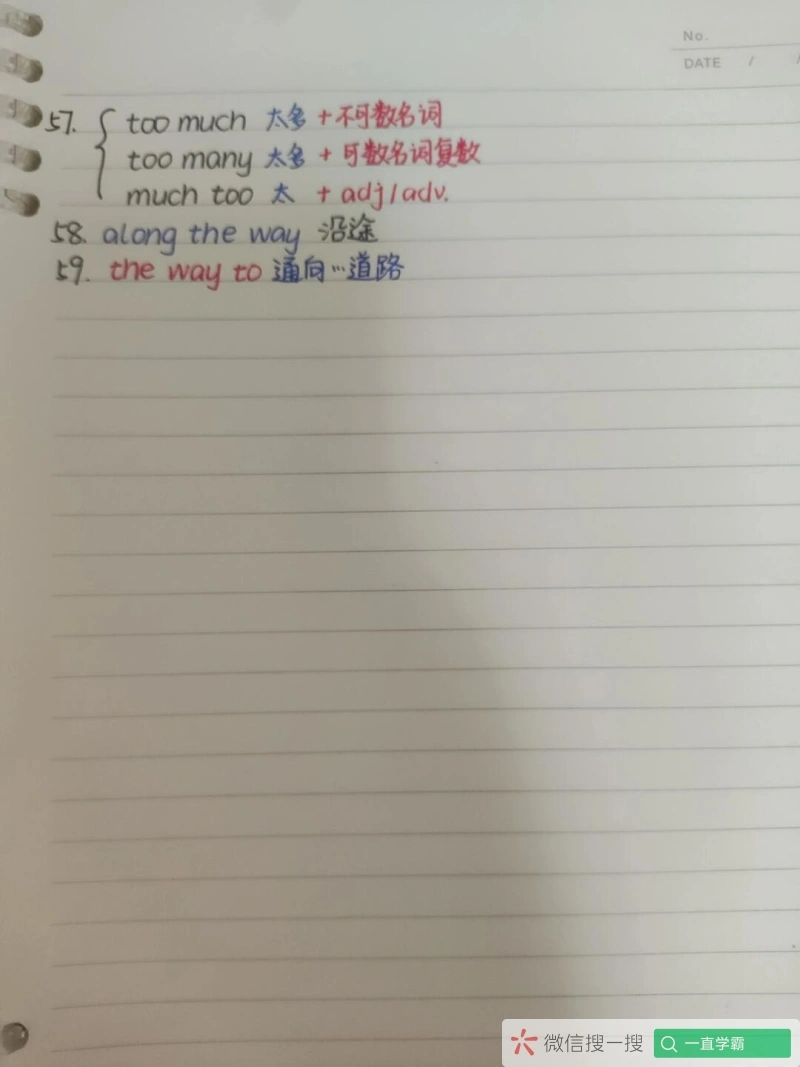 No.
DATE / /
57. { too much 太多 + 不可数名词
too many 太多 + 可数名词复数
much too 太 + adj/adv.
58. along the way 沿途
59. the way to 通向…道路
微信搜一搜 一直学霸